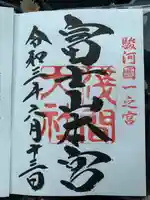 駿河國一之宮
富士山本宮
浅間大社
令和三年六月十三日